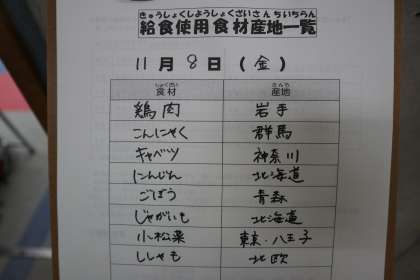 きゅうしょくしようしょくざいさんちいちらん
給食使用食材産地一覧
11月8日(金)
しょくざい さんち
食材 産地
鶏肉 岩手
こんにゃく 群馬
キャベツ 神奈川
にんじん 北海道
ごぼう 青森
じゃがいも 北海道
小松菜 東京・八王子
ししゃも 北欧